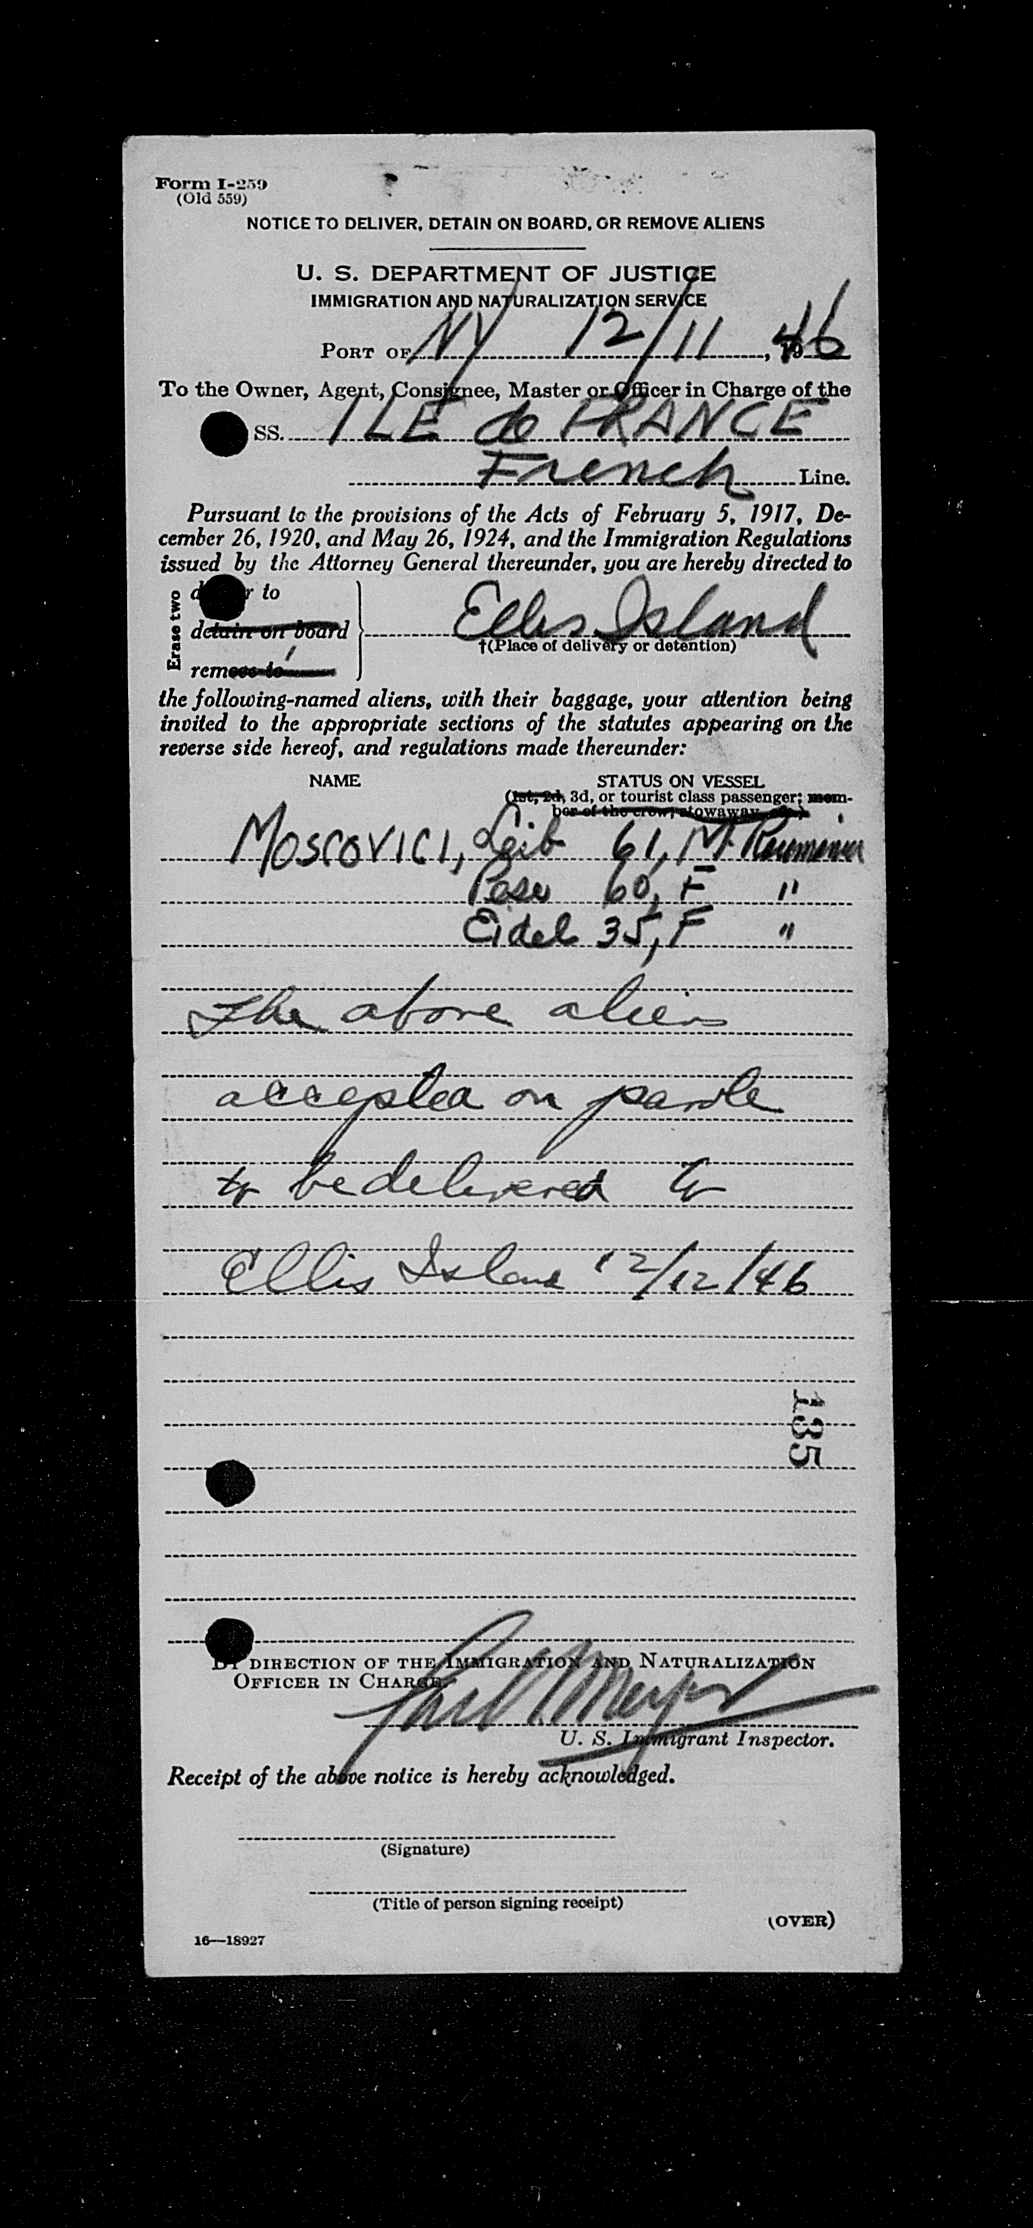 Form I-259
(Old 559)
NOTICE TO DELIVER, DETAIN ON BOARD, OR REMOVE ALIENS
U. S. DEPARTMENT OF JUSTICE
IMMIGRATION AND NATURALIZATION SERVICE
PORT OF NY 12/11, 1946
To the Owner, Agent, Consignee, Master or Officer in Charge of the
SS. ILE de FRANCE
French Line.
Pursuant to the provisions of the Acts of February 5, 1917, De-
cember 26, 1920, and May 26, 1924, and the Immigration Regulations
issued by the Attorney General thereunder, you are hereby directed to
Erase two
deliver to
detain on board
remove to
Ellis Island
†(Place of delivery or detention)
the following-named aliens, with their baggage, your attention being
invited to the appropriate sections of the statutes appearing on the
reverse side hereof, and regulations made thereunder:
NAME STATUS ON VESSEL
(1st, 2d, 3d, or tourist class passenger; mem-
ber of the crew; stowaway, etc.)
MOSCOVICI, Leib 61, M Roumanian
60, F "
Eidel 35, F "
The above aliens
accepted on parole
to be delivered to
Ellis Island 12/12/46
135
BY DIRECTION OF THE IMMIGRATION AND NATURALIZATION
OFFICER IN CHARGE.
U. S. Immigrant Inspector.
Receipt of the above notice is hereby acknowledged.
(Signature)
(Title of person signing receipt)
(OVER)
16—18927